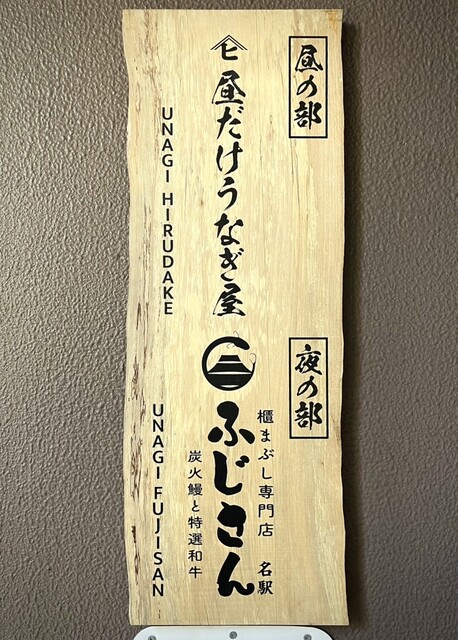 昼の部
ヒ
昼だけうなぎ屋
UNAGI HIRUDAKE
夜の部
櫃まぶし専門店 名駅
ふじさん
炭火鰻と特選和牛
UNAGI FUJISAN